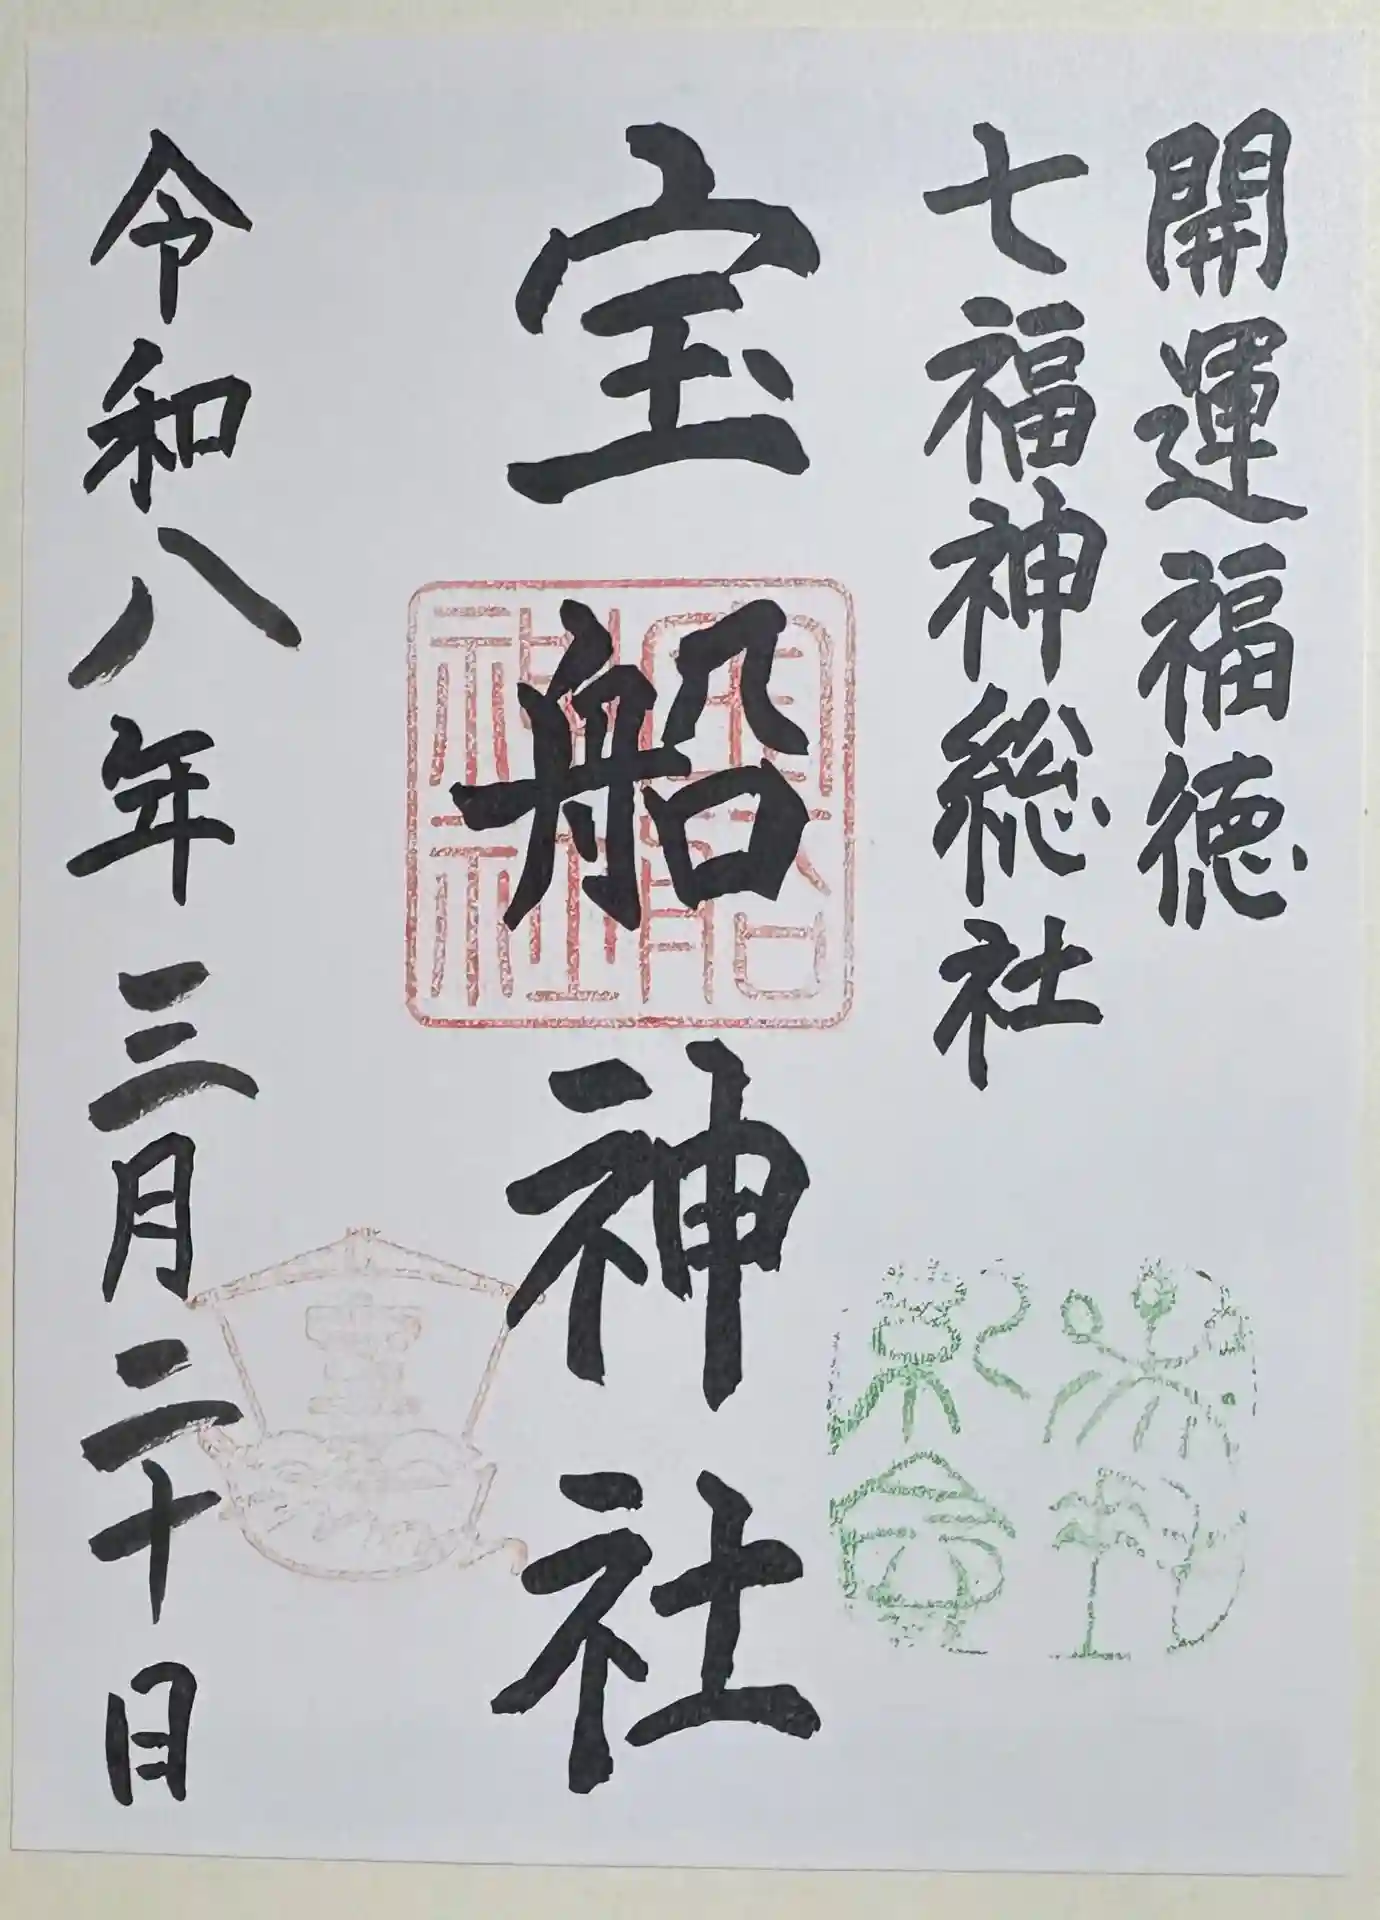 開運福徳
七福神総社
宝船神社
令和八年三月二十日
寶船神社